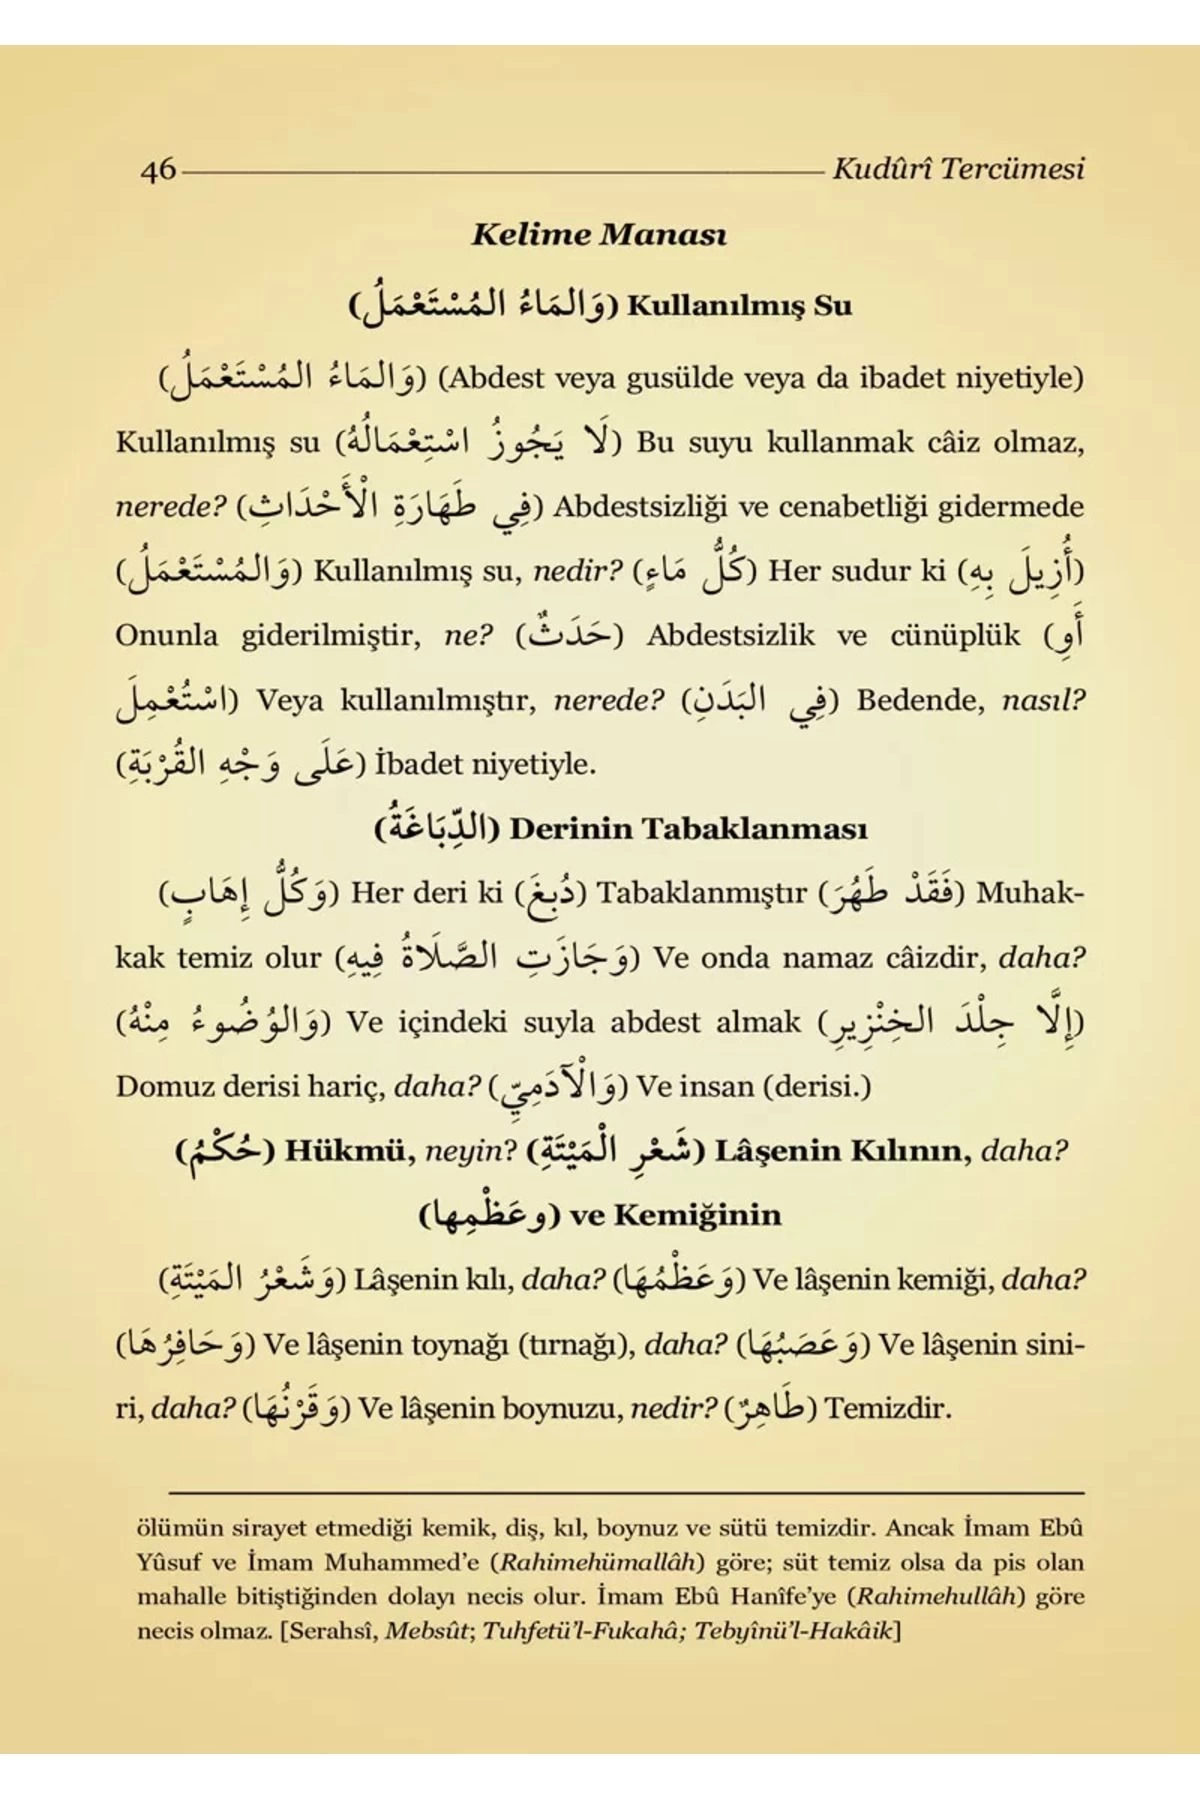 46 Kudûrî Tercümesi
Kelime Manası
(وَالمَاءُ المُسْتَعْمَلُ) Kullanılmış Su
(وَالمَاءُ المُسْتَعْمَلُ) (Abdest veya gusülde veya da ibadet niyetiyle)
Kullanılmış su (لَا يَجُوزُ اسْتِعْمَالُهُ) Bu suyu kullanmak câiz olmaz,
nerede? (فِي طَهَارَةِ الْأَحْدَاثِ) Abdestsizliği ve cenabetliği gidermede
(وَالمُسْتَعْمَلُ) Kullanılmış su, nedir? (كُلُّ مَاءٍ) Her sudur ki (أُزِيلَ بِهِ)
Onunla giderilmiştir, ne? (حَدَثٌ) Abdestsizlik ve cünüplük (أَوِ
اسْتُعْمِلَ) Veya kullanılmıştır, nerede? (فِي البَدَنِ) Bedende, nasıl?
(عَلَى وَجْهِ القُرْبَةِ) İbadet niyetiyle.
(الدِّبَاغَةُ) Derinin Tabaklanması
(وَكُلُّ إِهَابٍ) Her deri ki (دُبِغَ) Tabaklanmıştır (فَقَدْ طَهُرَ) Muhak-
kak temiz olur (وَجَازَتِ الصَّلَاةُ فِيهِ) Ve onda namaz câizdir, daha?
(وَالوُضُوءُ مِنْهُ) Ve içindeki suyla abdest almak (إِلَّا جِلْدَ الخِنْزِيرِ)
Domuz derisi hariç, daha? (وَالْآدَمِيِّ) Ve insan (derisi.)
(حُكْمُ) Hükmü, neyin? (شَعْرِ الْمَيْتَةِ) Lâşenin Kılının, daha?
(وعَظْمِها) ve Kemiğinin
(وَشَعْرُ المَيْتَةِ) Lâşenin kılı, daha? (وَعَظْمُهَا) Ve lâşenin kemiği, daha?
(وَحَافِرُهَا) Ve lâşenin toynağı (tırnağı), daha? (وَعَصَبُهَا) Ve lâşenin sini-
ri, daha? (وَقَرْنُهَا) Ve lâşenin boynuzu, nedir? (طَاهِرٌ) Temizdir.
ölümün sirayet etmediği kemik, diş, kıl, boynuz ve sütü temizdir. Ancak İmam Ebû
Yûsuf ve İmam Muhammed’e (Rahimehümallâh) göre; süt temiz olsa da pis olan
mahalle bitiştiğinden dolayı necis olur. İmam Ebû Hanîfe’ye (Rahimehullâh) göre
necis olmaz. [Serahsî, Mebsût; Tuhfetü’l-Fukahâ; Tebyînü’l-Hakâik]